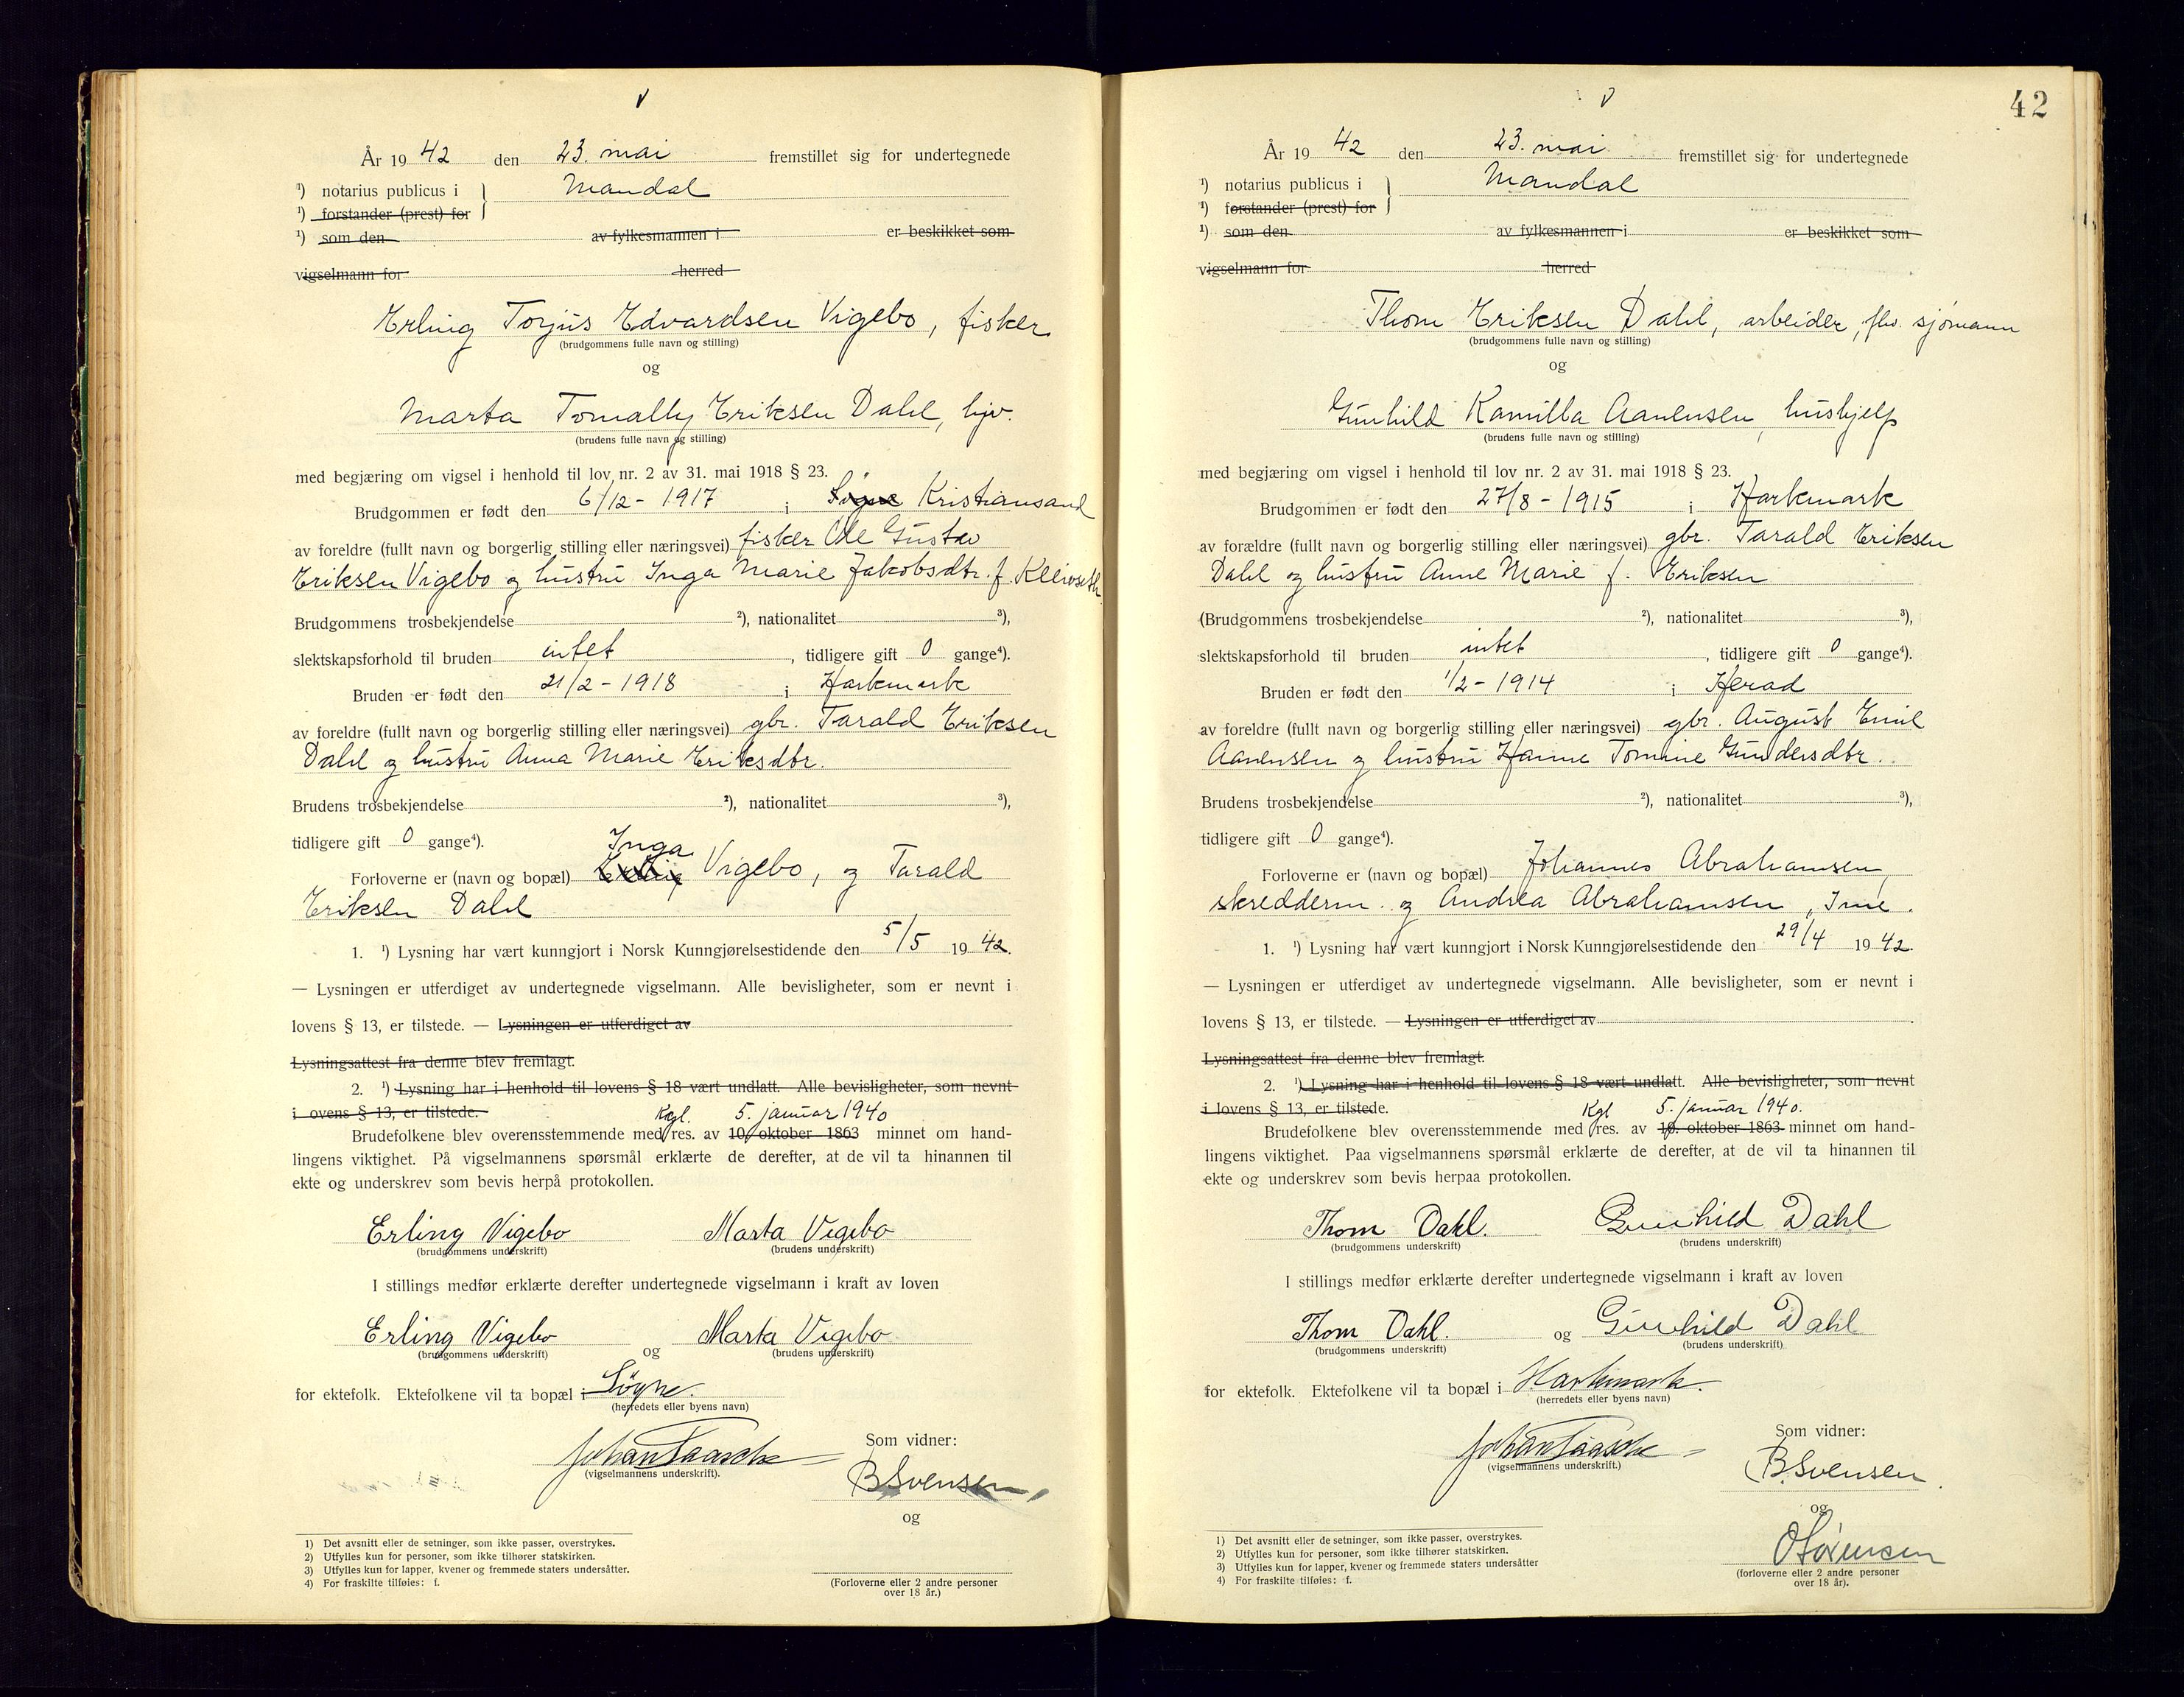 År 19 42 den 23. mai fremstillet sig for undertegnede
¹) notarius publicus i } Mandal
¹) forstander (prest) for
¹) som den av fylkesmannen i er beskikket som
vigselmann for herred
Erling Torjus Edvardsen Vigebo, fisker
(brudgommens fulle navn og stilling)
og
Marta Tomally Eriksen Dahl, hjv.
(brudens fulle navn og stilling)
med begjæring om vigsel i henhold til lov nr. 2 av 31. mai 1918 § 23.
Brudgommen er født den 6/12 - 1917 i Søgne Kristiansand
av foreldre (fullt navn og borgerlig stilling eller næringsvei) fisker Ole Gustav
Eriksen Vigebo og hustru Inga Marie Jakobsdtr. f. Kleivseth
Brudgommens trosbekjendelse ²), nationalitet ³),
slektskapsforhold til bruden intet, tidligere gift 0 gange⁴).
Bruden er født den 21/2 - 1918 i Harkmark
av foreldre (fullt navn og borgerlig stilling eller næringsvei) gbr. Tarald Eriksen
Dahl og hustru Anna Marie Eriksdtr.
Brudens trosbekjendelse ²), nationalitet ³),
tidligere gift 0 gange⁴).
Inga
Forloverne er (navn og bopæl) Erling Vigebo, og Tarald
Eriksen Dahl
1. ¹) Lysning har vært kunngjort i Norsk Kunngjørelsestidende den 5/5 19 42.
— Lysningen er utferdiget av undertegnede vigselmann. Alle bevisligheter, som er nevnt i
lovens § 13, er tilstede. — Lysningen er utferdiget av
Lysningsattest fra denne blev fremlagt.
2. ¹) Lysning har i henhold til lovens § 18 vært undlatt. Alle bevisligheter, som nevnt
i ovens § 13, er tilstede.
Kgl. 5. januar 1940
Brudefolkene blev overensstemmende med res. av 10. oktober 1863 minnet om hand-
lingens viktighet. På vigselmannens spørsmål erklærte de derefter, at de vil ta hinannen til
ekte og underskrev som bevis herpå protokollen.
Erling Vigebo Marta Vigebo
(brudgommens underskrift) (brudens underskrift)
I stillings medfør erklærte derefter undertegnede vigselmann i kraft av loven
Erling Vigebo og Marta Vigebo
(brudgommens underskrift) (brudens underskrift)
for ektefolk. Ektefolkene vil ta bopæl i Søgne.
(herredets eller byens navn)
Johan Faasche
(vigselmannens underskrift).
Som vidner:
B Svensen
og
(Forloverne eller 2 andre personer
over 18 år.)
1) Det avsnitt eller de setninger, som ikke passer, overstrykes.
2) Utfylles kun for personer, som ikke tilhører statskirken.
3) Utfylles kun for lapper, kvener og fremmede staters undersåtter.
4) For fraskilte tilføies: f.
42
År 19 42 den 23. mai fremstillet sig for undertegnede
¹) notarius publicus i } Mandal
¹) forstander (prest) for
¹) som den av fylkesmannen i er beskikket som
vigselmann for herred
Thom Eriksen Dahl, arbeider, fhv. sjømann
(brudgommens fulle navn og stilling)
og
Gunhild Kamilla Aanensen, hushjelp
(brudens fulle navn og stilling)
med begjæring om vigsel i henhold til lov nr. 2 av 31. mai 1918 § 23.
Brudgommen er født den 27/8 - 1915 i Harkmark
av forældre (fullt navn og borgerlig stilling eller næringsvei) gbr. Tarald Eriksen
Dahl og hustru Anne Marie f. Eriksen
(Brudgommens trosbekjendelse ²), nationalitet ³),
slektskapsforhold til bruden intet, tidligere gift 0 gange⁴).
Bruden er født den 1/2 - 1914 i Herad
av foreldre (fullt navn og borgerlig stilling eller næringsvei) gbr. August Emil
Aanensen og hustru Hanne Tomine Gundersdtr.
Brudens trosbekjendelse ²), nationalitet ³),
tidligere gift 0 gange⁴).
Forloverne er (navn og bopæl) Johannes Abrahamsen,
skredderm. og Andrea Abrahamsen, Ime.
1. ¹) Lysning har vært kunngjort i Norsk Kunngjørelsestidende den 29/4 19 42.
— Lysningen er utferdiget av undertegnede vigselmann. Alle bevisligheter, som er nevnt i
lovens § 13, er tilstede. — Lysningen er utferdiget av
Lysningsattest fra denne blev fremlagt.
2. ¹) Lysning har i henhold til lovens § 18 vært undlatt. Alle bevisligheter, som nevnt
i lovens § 13, er tilstede.
Kgl 5. januar 1940.
Brudefolkene blev overensstemmende med res. av 10. oktober 1863 minnet om hand-
lingens viktighet. Paa vigselmannens spørsmål erklærte de derefter, at de vil ta hinannen til
ekte og underskrev som bevis herpaa protokollen.
Thom Dahl. Gunhild Dahl
(brudgommens underskrift) (brudens underskrift)
I stillings medfør erklærte derefter undertegnede vigselmann i kraft av loven
Thom Dahl. og Gunhild Dahl
(brudgommens underskrift) (brudens underskrift)
for ektefolk. Ektefolkene vil ta bopæl i Harkmark.
(herredets eller byens navn)
Johan Faasche
(vigselmannens underskrift.)
Som vidner:
B. Svensen
og
O Sørensen
(forloverne eller 2 andre personer
over 18 år).
1) Det avsnitt eller de setninger, som ikke passer, overstrykes.
2) Utfylles kun for personer, som ikke tilhører statskirken.
3) Utfylles kun for lapper, kvener og fremmede staters undersåtter
4) For fraskilte tilføies: f.